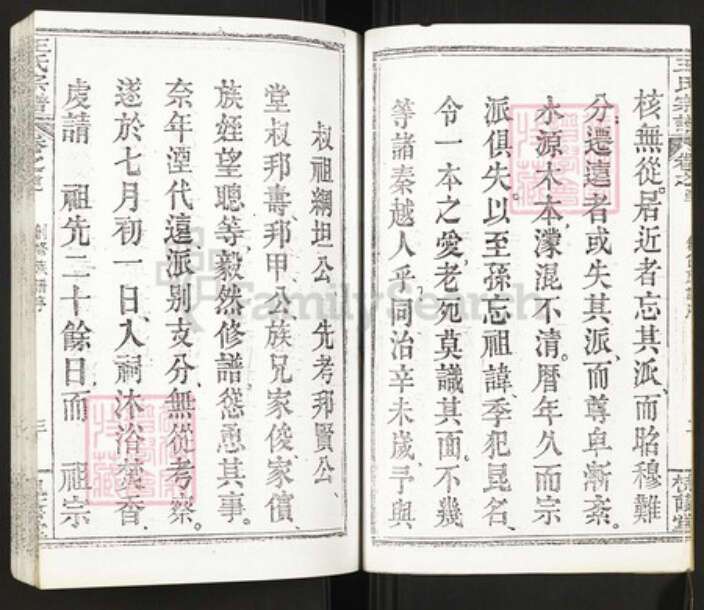 核無從。居近者忘其派、而昭穆難
分、遷遠者或失其派、而尊卑漸紊。
水源木本、濛混不清。曆年久而宗
派俱失。以至孫忘祖諱、季犯昆名、
令一本之愛、老死莫識其面。不幾
等諸秦越人乎、同治辛未歲、予與
叔祖綱坦公 先考邦賢公、
堂叔邦壽、邦甲公族兄家俊家儐、
族姪望聰等、毅然修譜、慫恿其事。
奈年湮代遠、派別支分、無從考察。
遂於七月初一日、入祠沐浴焚香、
虔請 祖先二十餘日、而 祖宗
王氏宗譜
卷之
三
王氏宗譜
FamilySearch